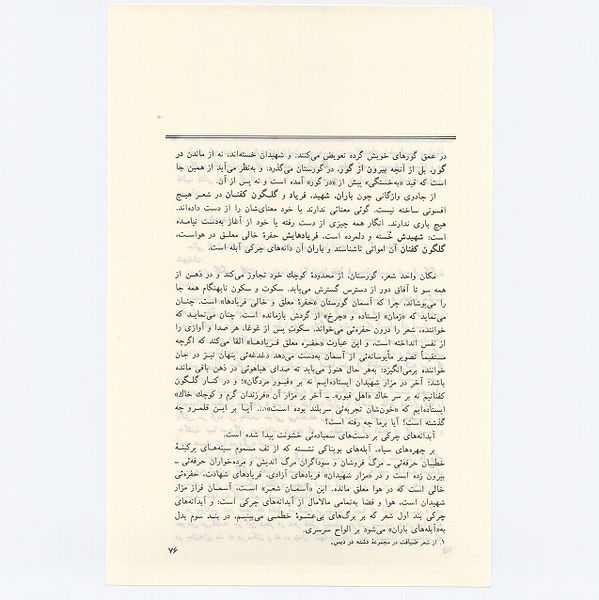 در عمق گورهای خویش گرده تعویض می‌کنند. و شهیدان خسته‌اند، نه از ماندن در
گور، بل از آنچه بیرون از گور، در گورستان می‌گذرد. و به‌نظر می‌آید از همین جا
است که قید «به‌خستگی» پیش از «در گور» آمده است و نه پس از آن.
از جادوی واژگانی چون باران، شهید، فریاد و گلگون کفنان در شعر هیچ
افسونی ساخته نیست. گوئی معنائی ندارند یا خود معنای‌شان را از دست داده‌اند.
هیچ باری ندارند. انگار همه چیزی از دست رفته یا خود از آغاز به‌دست نیامده
است: شهیدش خسته و دلمرده است، فریادهایش حفرهٔ خالی معلق در هواست،
گلگون کفنان آن امواتی ناشناسند و باران آن دانه‌های چرکی آبله است.
مکان واحد شعر، گورستان، از محدودهٔ کوچك خود تجاوز می‌کند و در ذهن از
همه سو تا آفاق دور از دسترس گسترش می‌یابد. سکوت و سکون نابهنگام همه جا
را می‌پوشاند، چرا که آسمان گورستان «حفرهٔ معلق و خالی فریادها» است. چنان
می‌نماید که «زمان» ایستاده و «چرخ» از گردش بازمانده است. چنان می‌نماید که
خواننده، شعر را درون حفره‌ئی می‌خواند. سکوتِ پس از غوغا، هر صدا و آوازی را
از نفس انداخته است، و این عبارت «حفره معلق فریادها» القا می‌کند که اگرچه
مستقیماً تصویر مأیوسانه‌ئی از آسمان به‌دست می‌دهد دغدغه‌ئی پنهان نیز در جان
خواننده برمی‌انگیزد: به‌هر حال هنوز می‌باید ته صدای هیاهوئی در ذهن باقی مانده
باشد: آخر در مزار شهیدان ایستاده‌ایم نه بر «قبور مردگان»؛ و در کنار گلگون
کفنانیم نه بر سر خاك «اهل قبور». ـ آخر بر مزار آن «فرزندان گرم و کوچك خاك»
ایستاده‌ایم که «خون‌شان تجربه‌ئی سربلند بوده است»¹... آیا بر این قلمرو چه
گذشته است؟ آیا برما چه رفته است؟
آبدانه‌های چرکی بر دست‌های سمپاده‌ئی خشونت پیدا شده است.
بر چهره‌های سیاه، آبله‌های بویناکی نشسته که از تف مسموم سینه‌های پرکینهٔ
خطیبان حرفه‌ئی ـ مرگ فروشان و سوداگران مرگ اندیش و مرده‌خواران حرفه‌ئی ـ
بیرون زده است و در «مزار شهیدان» فریادهای آزادی، فریادهای شهادت، حفره‌ئی
خالی است که در هوا معلق مانده. این «آسمان شعر» است، آسمان فراز مزار
شهیدان است. هوا و فضا به‌تمامی مالامال از آبدانه‌های چرکی است: و آبدانه‌های
چرکی بند اول شعر که بر برگ‌های بی‌عشوهٔ خطمی می‌بینیم، در بند سوم بدل
به‌«آبله‌های باران» می‌شود بر الواح سرسری.
۱. از شعر ضیافت در مجموعهٔ دشنه در دیس.
۷۶